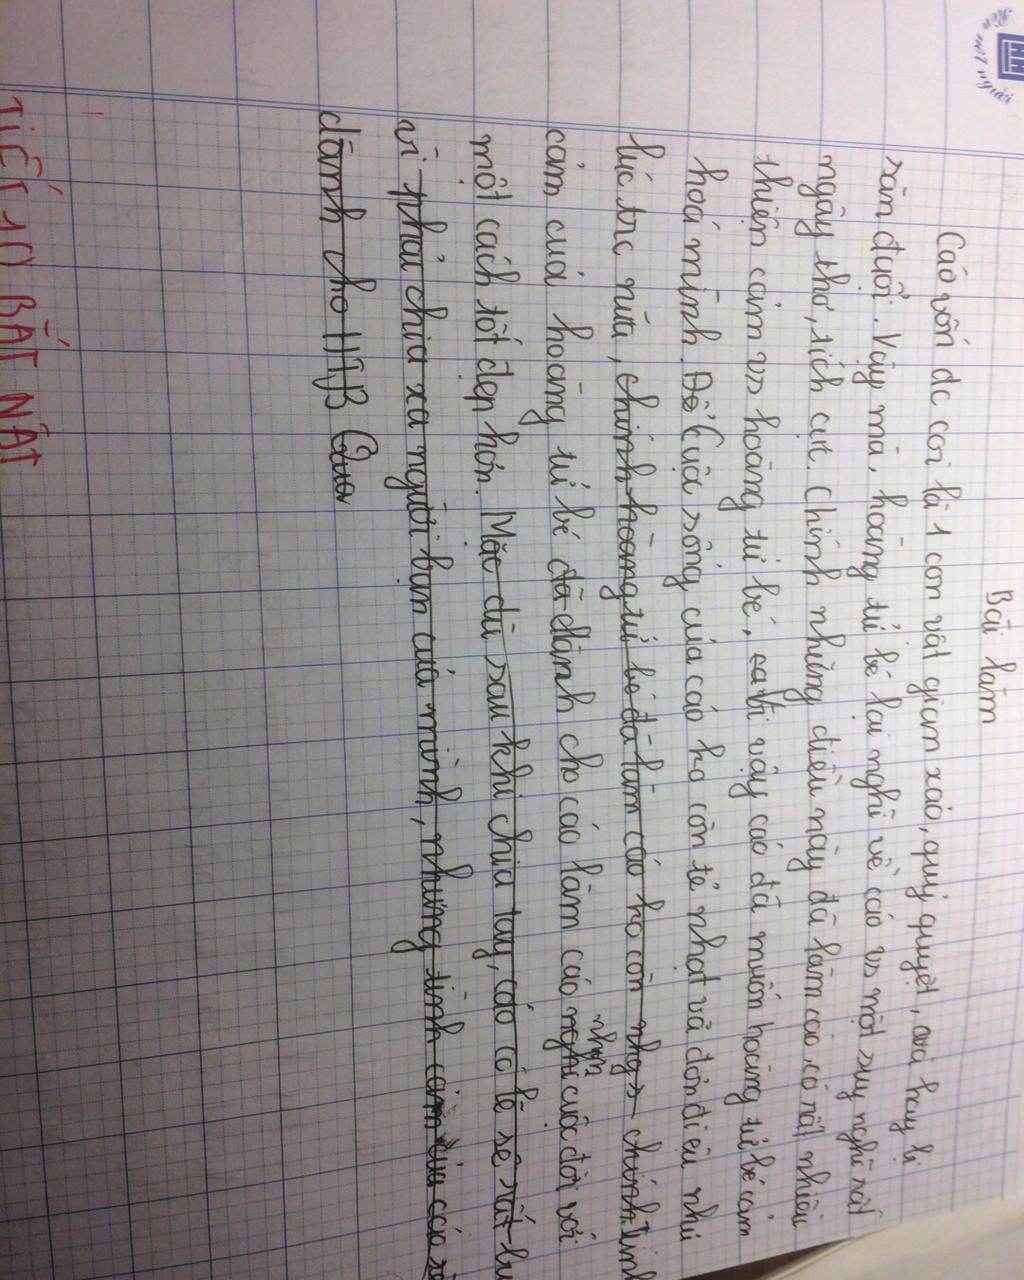 một người
Bài làm
Cáo vốn dc coi là 1 con vật gian xảo, quỷ quyệt, và hay bị
săn đuổi. Vậy mà, hoàng tử bé lại nghĩ về cáo vs một suy nghĩ rất
ngây thơ, tích cực. Chính những điều này đã làm cáo có rất nhiều
thiện cảm vs hoàng tử bé, bởi vậy cáo đã muốn hoàng tử bé cảm
hoá mình. Để Cuộc sống của cáo ko còn tẻ nhạt và đơn điệu như
lúc trc nữa, chính hoàng tử bé đã làm cáo ko còn nhạ> chính tình
cảm của hoàng tử bé đã dành cho cáo làm cáo nghĩ nhìn cuộc đời với
một cách tốt đẹp hơn. Mặc dù sau khi chia tay, cáo có lẽ sẽ rất bu
vì phải chia xa người bạn của mình, nhưng tình cảm của cáo
dành cho HTB Qua
TIẾT 10 BẮT NẠT